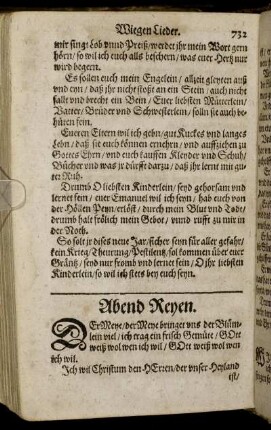 Wiegen Lieder. 732
mir sing: Lob vnnd Preiß/ werdet ihr mein Wort gern
hörn/ so wil ich euch alls beschern/ was euer Hertz nur
wird begern.
Es sollen euch mein Engelein/ allzeit gleyten auß
vnd eyn/ daß ihr nicht stoßt an ein Stein/ auch nicht
fallt vnd brecht ein Bein/ Euer liebsten Müterlein/
Vatter/ Brüder vnd Schwesterlein/ solln sie auch be-
hüten fein.
Eueren Eltern wil ich gebn/ gut Glückes vnd langes
Lebn/ daß sie euch können ernehrn/ vnd auffziehen zu
Gottes Ehrn/ vnd euch kauffen Kleyder vnd Schuh/
Bücher vnd was jr dürfft darzu/ daß ihr lernt mit gu-
ter Ruh.
Drumb O liebsten Kinderlein/ seyd gehorsam vnd
lernet fein/ euer Emanuel wil ich seyn/ hab euch von
der Höllen Peyn/ erlöst/ durch mein Blut vnd Todt/
drumb halt frölich mein Gebot/ vnnd rufft zu mir in
der Noth.
So solt jr dises neue Jar/ sicher seyn für aller gefahr/
kein Krieg/ Theurung/ Pestilentz/ sol kommen über euer
Gräntz/ seyd nur fromb vnd lernet fein/ O jhr liebsten
Kinderlein/ so wil ich stets bey euch seyn.
Abend Reyen.
DEr Meye/ der Meye bringet vns der Blüm-
lein viel/ ich trag ein frisch Gemüte/ GOtt
weiß wol wen ich wil/ GOtt weiß wol wen
ich wil.
Ich wil Christum den HErren/ der vnser Heyland
ist/